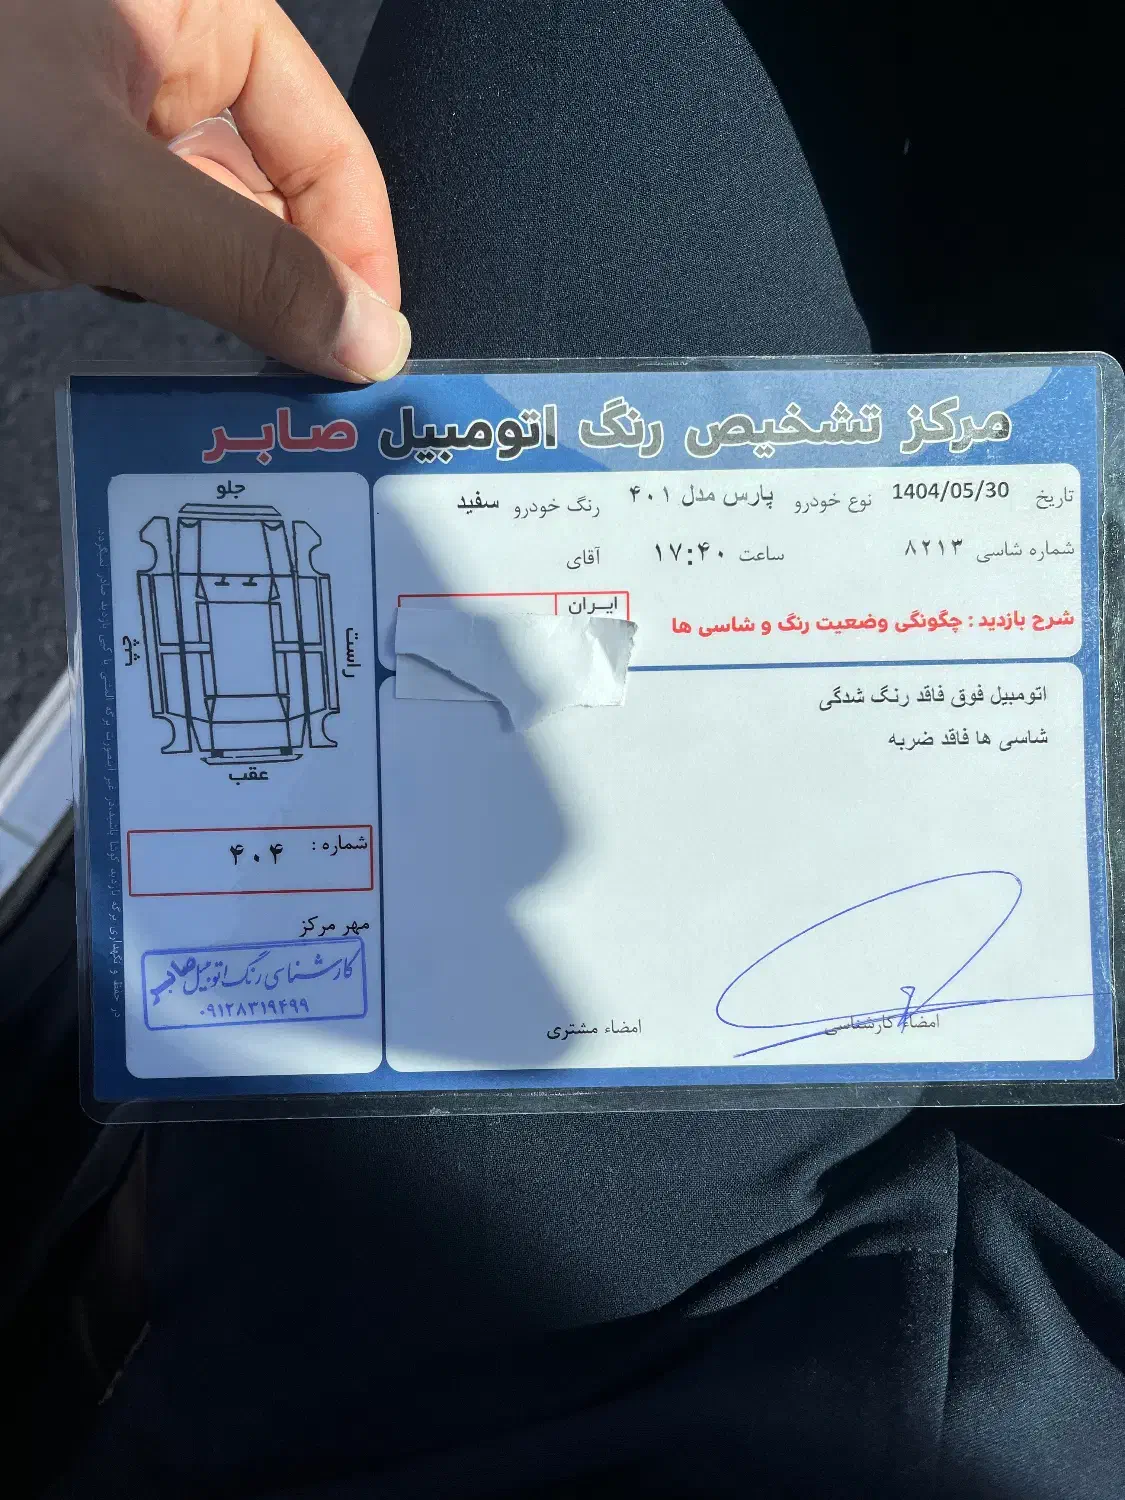 مرکز تشخیص رنگ اتومبیل صابر
تاریخ 1404/05/30 نوع خودرو پارس مدل ۴۰۱ رنگ خودرو سفید
شماره شاسی ۸۲۱۳ ساعت ۱۷:۴۰ آقای
ایـران
شرح بازدید : چگونگی وضعیت رنگ و شاسی ها
اتومبیل فوق فاقد رنگ شدگی
شاسی ها فاقد ضربه
امضاء کارشناسی امضاء مشتری
جلو
راست
چپ
عقب
شماره : ۴۰۴
مهر مرکز
کارشناسی رنگ اتومبیل صابر
۰۹۱۲۸۳۱۹۴۹۹